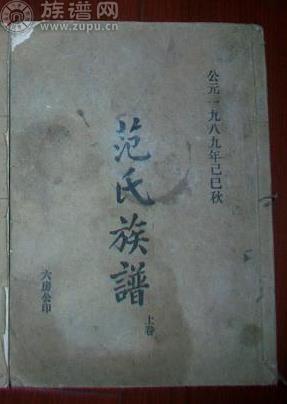 族谱网
www.zupu.cn
公元一九八九年己巳秋
范氏族譜
上卷
六房公印